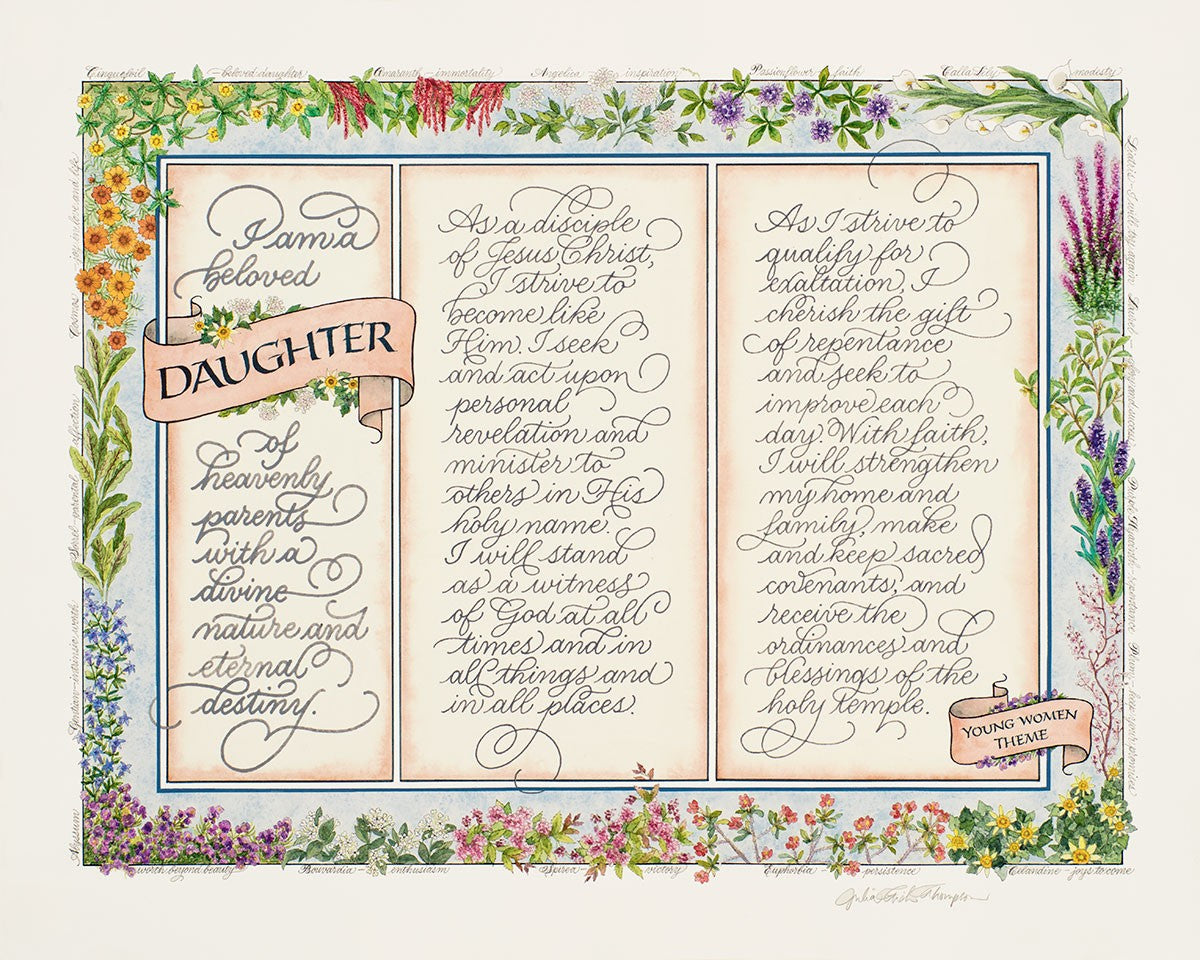 Cinquefoil - beloved daughter Amaranth - immortality Angelica - inspiration Passionflower - faith Calla Lily - modesty
Cosmos - joy in love and life
Sorrel - parental affection
Gentian - intrinsic worth
I am a
beloved
DAUGHTER
of
heavenly
parents
with a
divine
nature and
eternal
destiny.
As a disciple
of Jesus Christ,
I strive to
become like
Him. I seek
and act upon
personal
revelation and
minister to
others in His
holy name.
I will stand
as a witness
of God at all
times and in
all things and
in all places.
As I strive to
qualify for
exaltation, I
cherish the gift
of repentance
and seek to
improve each
day. With faith,
I will strengthen
my home and
family, make
and keep sacred
covenants, and
receive the
ordinances and
blessings of the
holy temple.
YOUNG WOMEN
THEME
Liatris - I will try again
keep your promises
Alyssum - worth beyond beauty Bouvardia - enthusiasm Spirea - victory Euphorbia - persistence Celandine - joys to come
Thompson